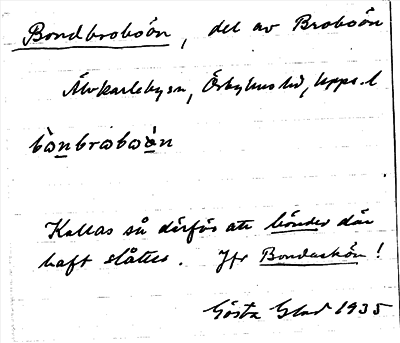 Bondbroboön, del av Broboön
Älvkarleby sn, Örbyhus hd, Upps. l
bònbroboön
Kallas så därför att bönder där
haft slåtter. Jfr Bondaskön!
Gösta Glad 1935